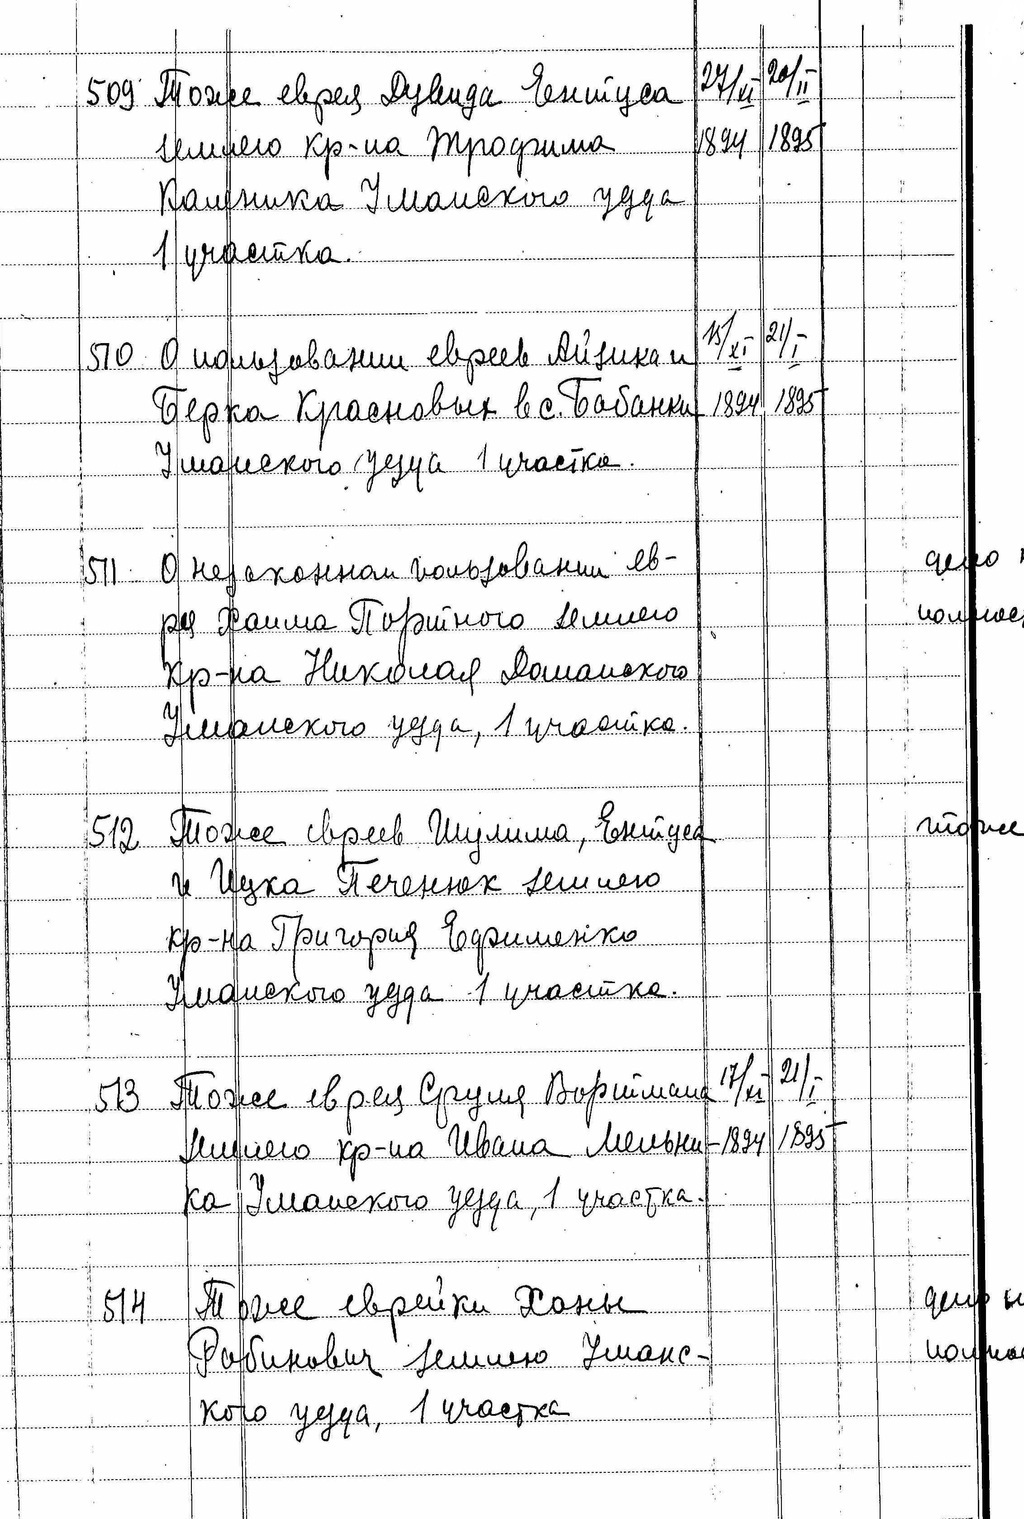 509 Тоже еврея Дувида Ентуса 27/XI 20/II
землею кр-на Трофима 1894 1895
Каленика Уманского уезда
1 участка.
510 О пользовании евреев Айзика и 15/XI 21/I
Берка Красновых в с. Бабанки 1894 1895
Уманского уезда 1 участка.
511 О незаконном пользовании ев- дело
рея Хаима Портного землею
кр-на Николая Доманского
Уманского уезда, 1 участка.
512 Тоже евреев Шулима, Ентуса тоже
и Ицка Печенюк землею
кр-на Григория Ефименко
Уманского уезда 1 участка.
513 Тоже еврея Сруля Вортмана 17/XI 21/I
землею кр-на Ивана Мельни- 1894 1895
ка Уманского уезда, 1 участка.
514 Тоже еврейки Ханы дело
Рабинович землею Уманс-
кого уезда, 1 участка